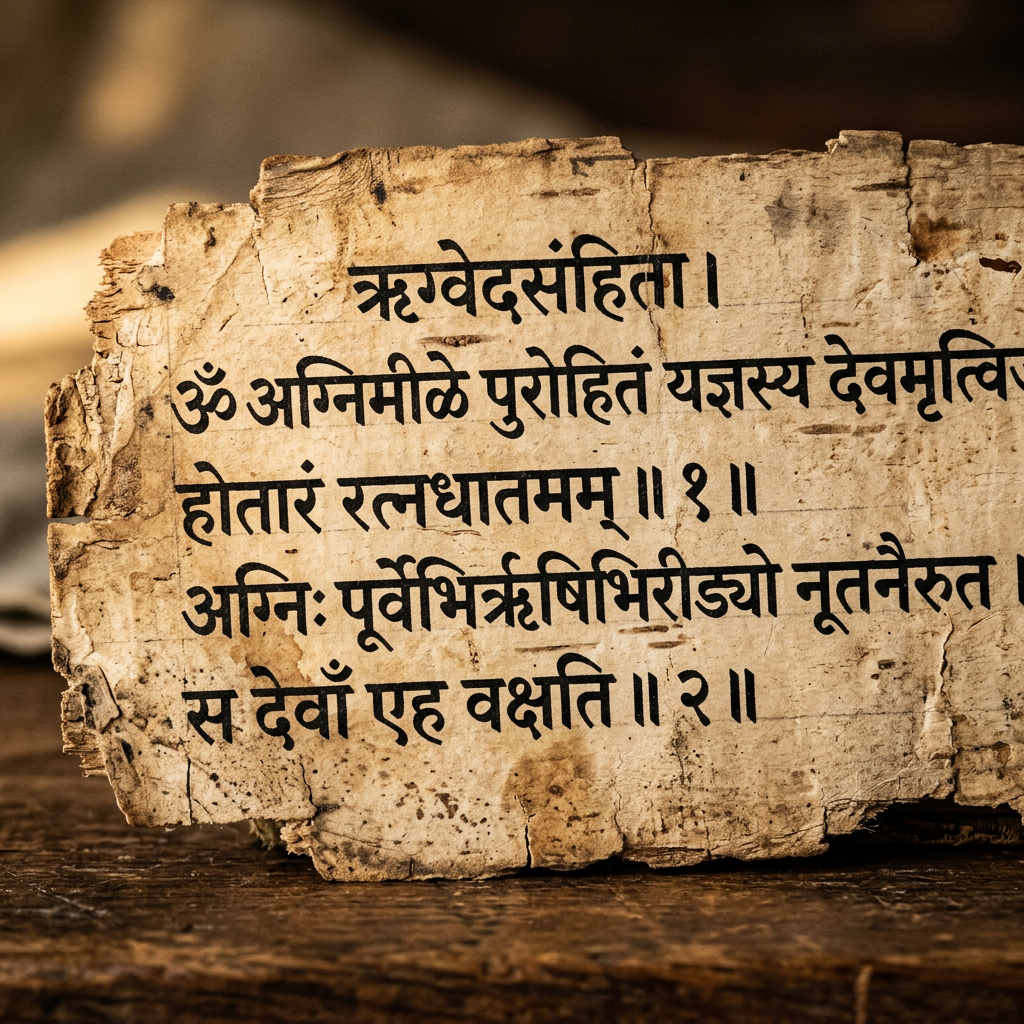 ऋग्वेदसंहिता ।
ॐ अग्निमीळे पुरोहितं यज्ञस्य
होतारं रत्नधातमम् ॥ १ ॥
अग्निः पूर्वेभिर्ऋषिभिरीड्यो नूतनैरुत ।
स देवाँ एह वक्षति ॥ २ ॥